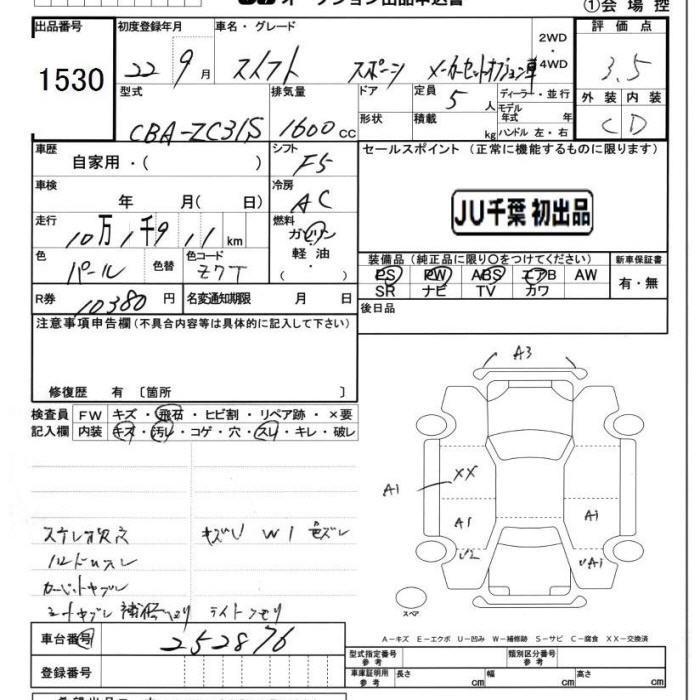 オークション出品申込書
①会場控
出品番号 1530
初度登録年月 22 9月
車名・グレード スイフト スポーツ メーカーセットオプション車
2WD・4WD
評価点 3.5
型式 CBA-ZC31S
排気量 1600cc
ドア
形状
定員 5人
積載 kg
ディーラー・並行
モデル年式 年
ハンドル 左・右
外装 内装
C D
車歴 自家用・( )
シフト F5
セールスポイント (正常に機能するものに限ります)
車検 年 月( 日)
冷房 AC
JU千葉 初出品
走行 10万1千911km
燃料 ガソリン・軽油・( )
色 パール
色替
色コード Z7T
装備品 (純正品に限り○をつけてください)
新車保証書
PS PW ABS エアB AW
SR ナビ TV カワ
有・無
R券 10380円
名変通知期限 月 日
後日品
注意事項申告欄 (不具合内容等は具体的に記入して下さい)
修復歴 有 〔箇所 〕
検査員記入欄
FW キズ・飛石・ヒビ割・リペア跡・×要
内装 キズ・汚れ・コゲ・穴・スレ・キレ・破レ
A3
A1
XX
A1
A1
U2
UA1
スペア
キズU W1 色ズレ
ハンドルスレ
A-キズ E-エクボ U-凹み W-補修跡 S-サビ C-腐食 XX-交換済
車台番号 252876
登録番号
型式指定番号 参考
類別区分番号 参考
車庫証明用 参考
長さ cm
幅 cm
高さ cm